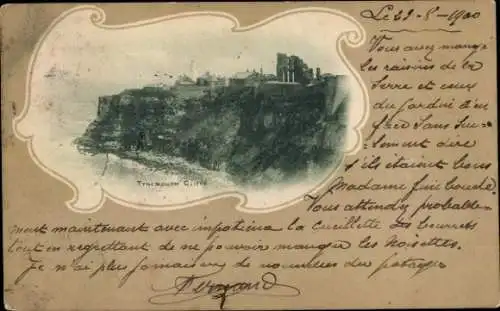 Le 23-8-1900
Vous avez mangé
les raisins de la
serre et ceux
du jardin d'en
face sans seu-
lement dire
s'ils étaient bons
Madame fine bouche.
Vous attendez probable-
ment maintenant avec impatience la cueillette des
tout en regrettant de ne pouvoir manger les Noisettes.
Je n'ai plus jamais de nouvelles du potager
Fernand
Tynemouth Cliffs